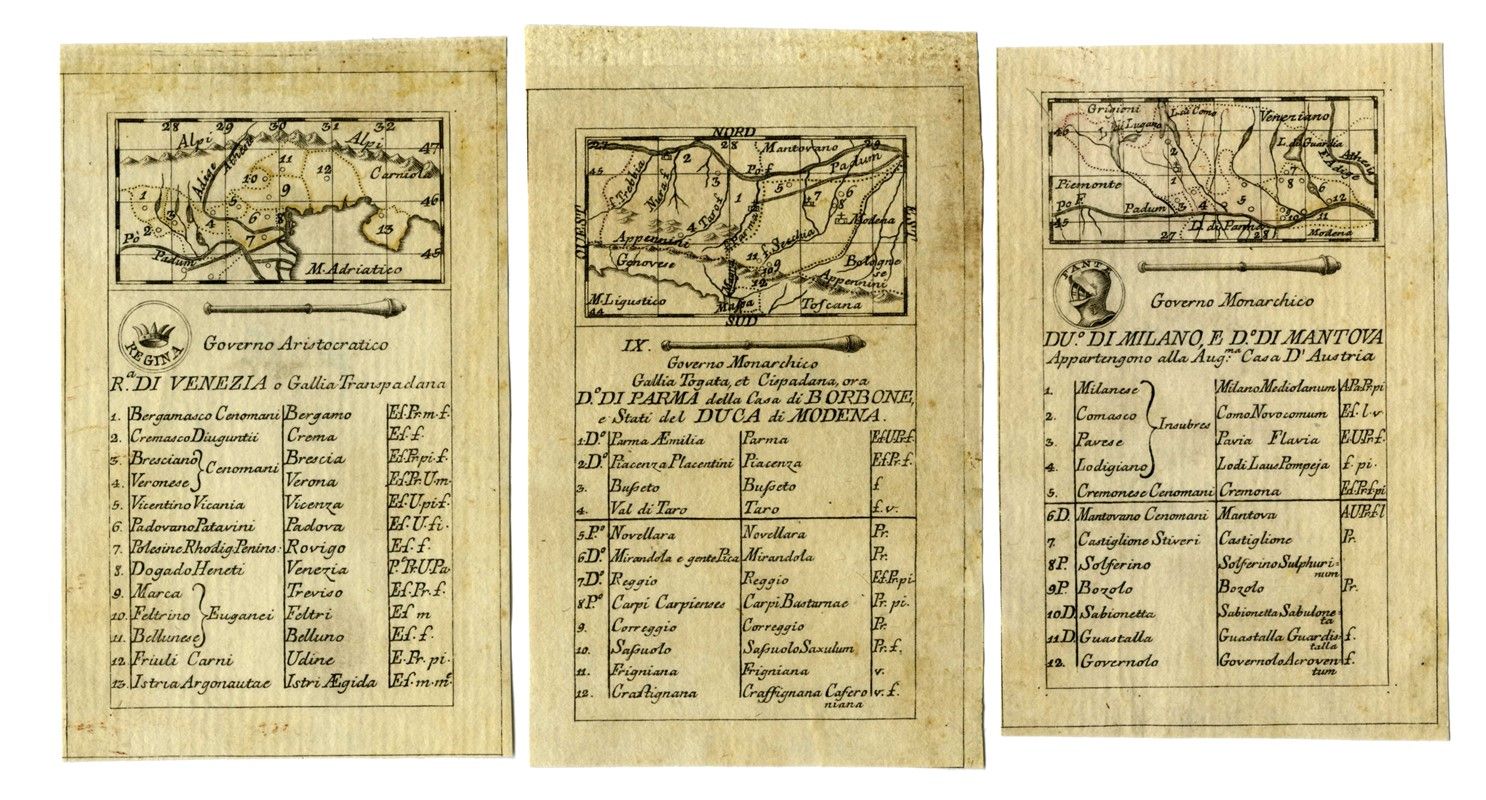 28 29 30 31 32
Alpi Alpi
47
11
12
10
Carniola
Adige
1
9
5
46
3
4
6
8
2
7
13
Po
Padum
45
M. Adriatico
REGINA
Governo Aristocratico
R.ª DI VENEZIA o Gallia Transpadana
1. Bergamasco Cenomani Bergamo Ef.Pr.m.f.
2. Cremasco Diuguntii Crema Ef.f.
3. Bresciano Brescia Ef.Pr.pi.f.
Cenomani
4. Veronese Verona Ef.Pr.U.m.
5. Vicentino Vicania Vicenza Ef.U.pi.f.
6. Padovano Patavini Padova Ef.U.fi.
7. Polesine Rhodig. Penins. Rovigo Ef.f.
8. Dogado Heneti Venezia P.ª Pr.U.Pa.
9. Marca Treviso Ef.Pr.f.
10. Feltrino Euganei Feltri Ef m
11. Bellunese Belluno Ef.f.
12. Friuli Carni Udine E.Pr.pi.
13. Istria Argonautae Istri Ægida Ef.m.mᵗ.
NORD
27 28 29
2
Mantovano
45
f. Trebbia
Po f.
Padum
3
5
Nura f
1
7
6
8
4 Taro f
Parma
Modena
OUEST
EST
Appennini
f. Secchia
11
9
10
Genovese
Bologne
se
12
Magra
Appennini
M. Ligustico
Massa
Toscana
44
SUD
IX.
Governo Monarchico
Gallia Togata, et Cispadana, ora
D.º DI PARMA della Casa di BORBONE,
e Stati del DUCA di MODENA.
1.D.º Parma Æmilia Parma Ef.U.Pr.f.
2.D.º Piacenza Placentini Piacenza Ef.Pr.f.
3. Bufseto Bufseto f
4. Val di Taro Taro f.v.
5.P.º Novellara Novellara Pr.
6D.º Mirandola e gente Pica Mirandola Pr.
7.D.º Reggio Reggio Ef.Pr.pi
8P.º Carpi Carpienses Carpi Bastarnae Pr. pi.
9. Correggio Correggio Pr.
10. Safsuolo Safsuolo Saxulum Pr.f.
11. Frigniana Frigniana v.
12. Graffignana Graffignana Cafero v.f.
niana
Grigioni
L. di Como
Veneziano
46
L. di Lugano
L. di Guardia
Athesis
F. Adige
2
1
7
8
6
Piemonte
Po F.
Padum
3
4
5
12
45
9
10
11
D. di Parma
27 28
Modena
FANTE
Governo Monarchico
DU.º DI MILANO, E D.º DI MANTOVA
Appartengono alla Aug.ᵐᵃ Casa D'Austria
1. Milanese Milano Mediolanum A.Pa.Pr.pi
2. Comasco Como Novocomum Ef. l. v.
Insubres
3. Pavese Pavia Flavia E.U.Pr.f.
4. Lodigiano Lodi Laus Pompeja f. pi.
5. Cremonese Cenomani Cremona Ef.Pr.f.pi
6D. Mantovano Cenomani Mantova A.U.Pr.f.l
7. Castiglione Stiveri Castiglione Pr.
8P. Solferino Solferino Sulphuri=
num
9P. Bozolo Bozolo Pr.
10D. Sabionetta Sabionetta Sabulone=
ta
11D. Guastalla Guastalla Guardis= f.
talla
12. Governolo Governolo Acroven= f.
tum